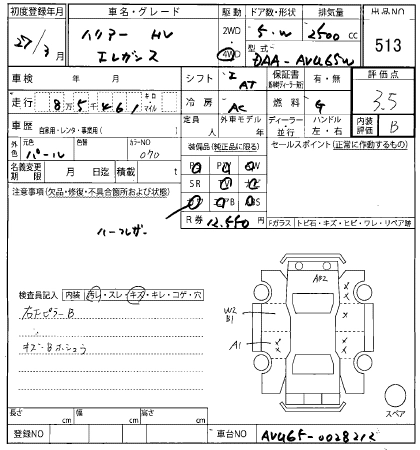 初度登録年月 車名・グレード 駆動 ドア数・形状 排気量 出品NO
27/3月 ハリアー HV エレガンス 2WD 4WD 5・W 2500 CC 513
型式 DAA-AVU65W
車検 年 月 シフト AT 保証書 有・無 評価点 3.5
走行 8万5千461 キロ・マイル 冷房 AC 燃料 G
車歴 自家用・レンタ・事業用( ) 定員 人 外車モデル 年 ディーラー・並行 ハンドル 左・右 内装評価 B
外色 元色 パール 色替 カラーNO 070 装備品(純正品に限る) セールスポイント(正常に作動するもの)
名義変更期限 月 日迄 積載 t
SR
注意事項(欠品・修復・不具合箇所および状態)
ハーフレザー
R券 12,550円
Fガラス トビ石・キズ・ヒビ・ワレ・リペア跡
AB2
検査員記入 内装 汚れ・スレ・キズ・キレ・コゲ・穴
W2
B1
A1
キズ・Bホシュウ
スペア
長さ cm 幅 cm 高さ cm
登録NO 車台NO AVU65-0028212